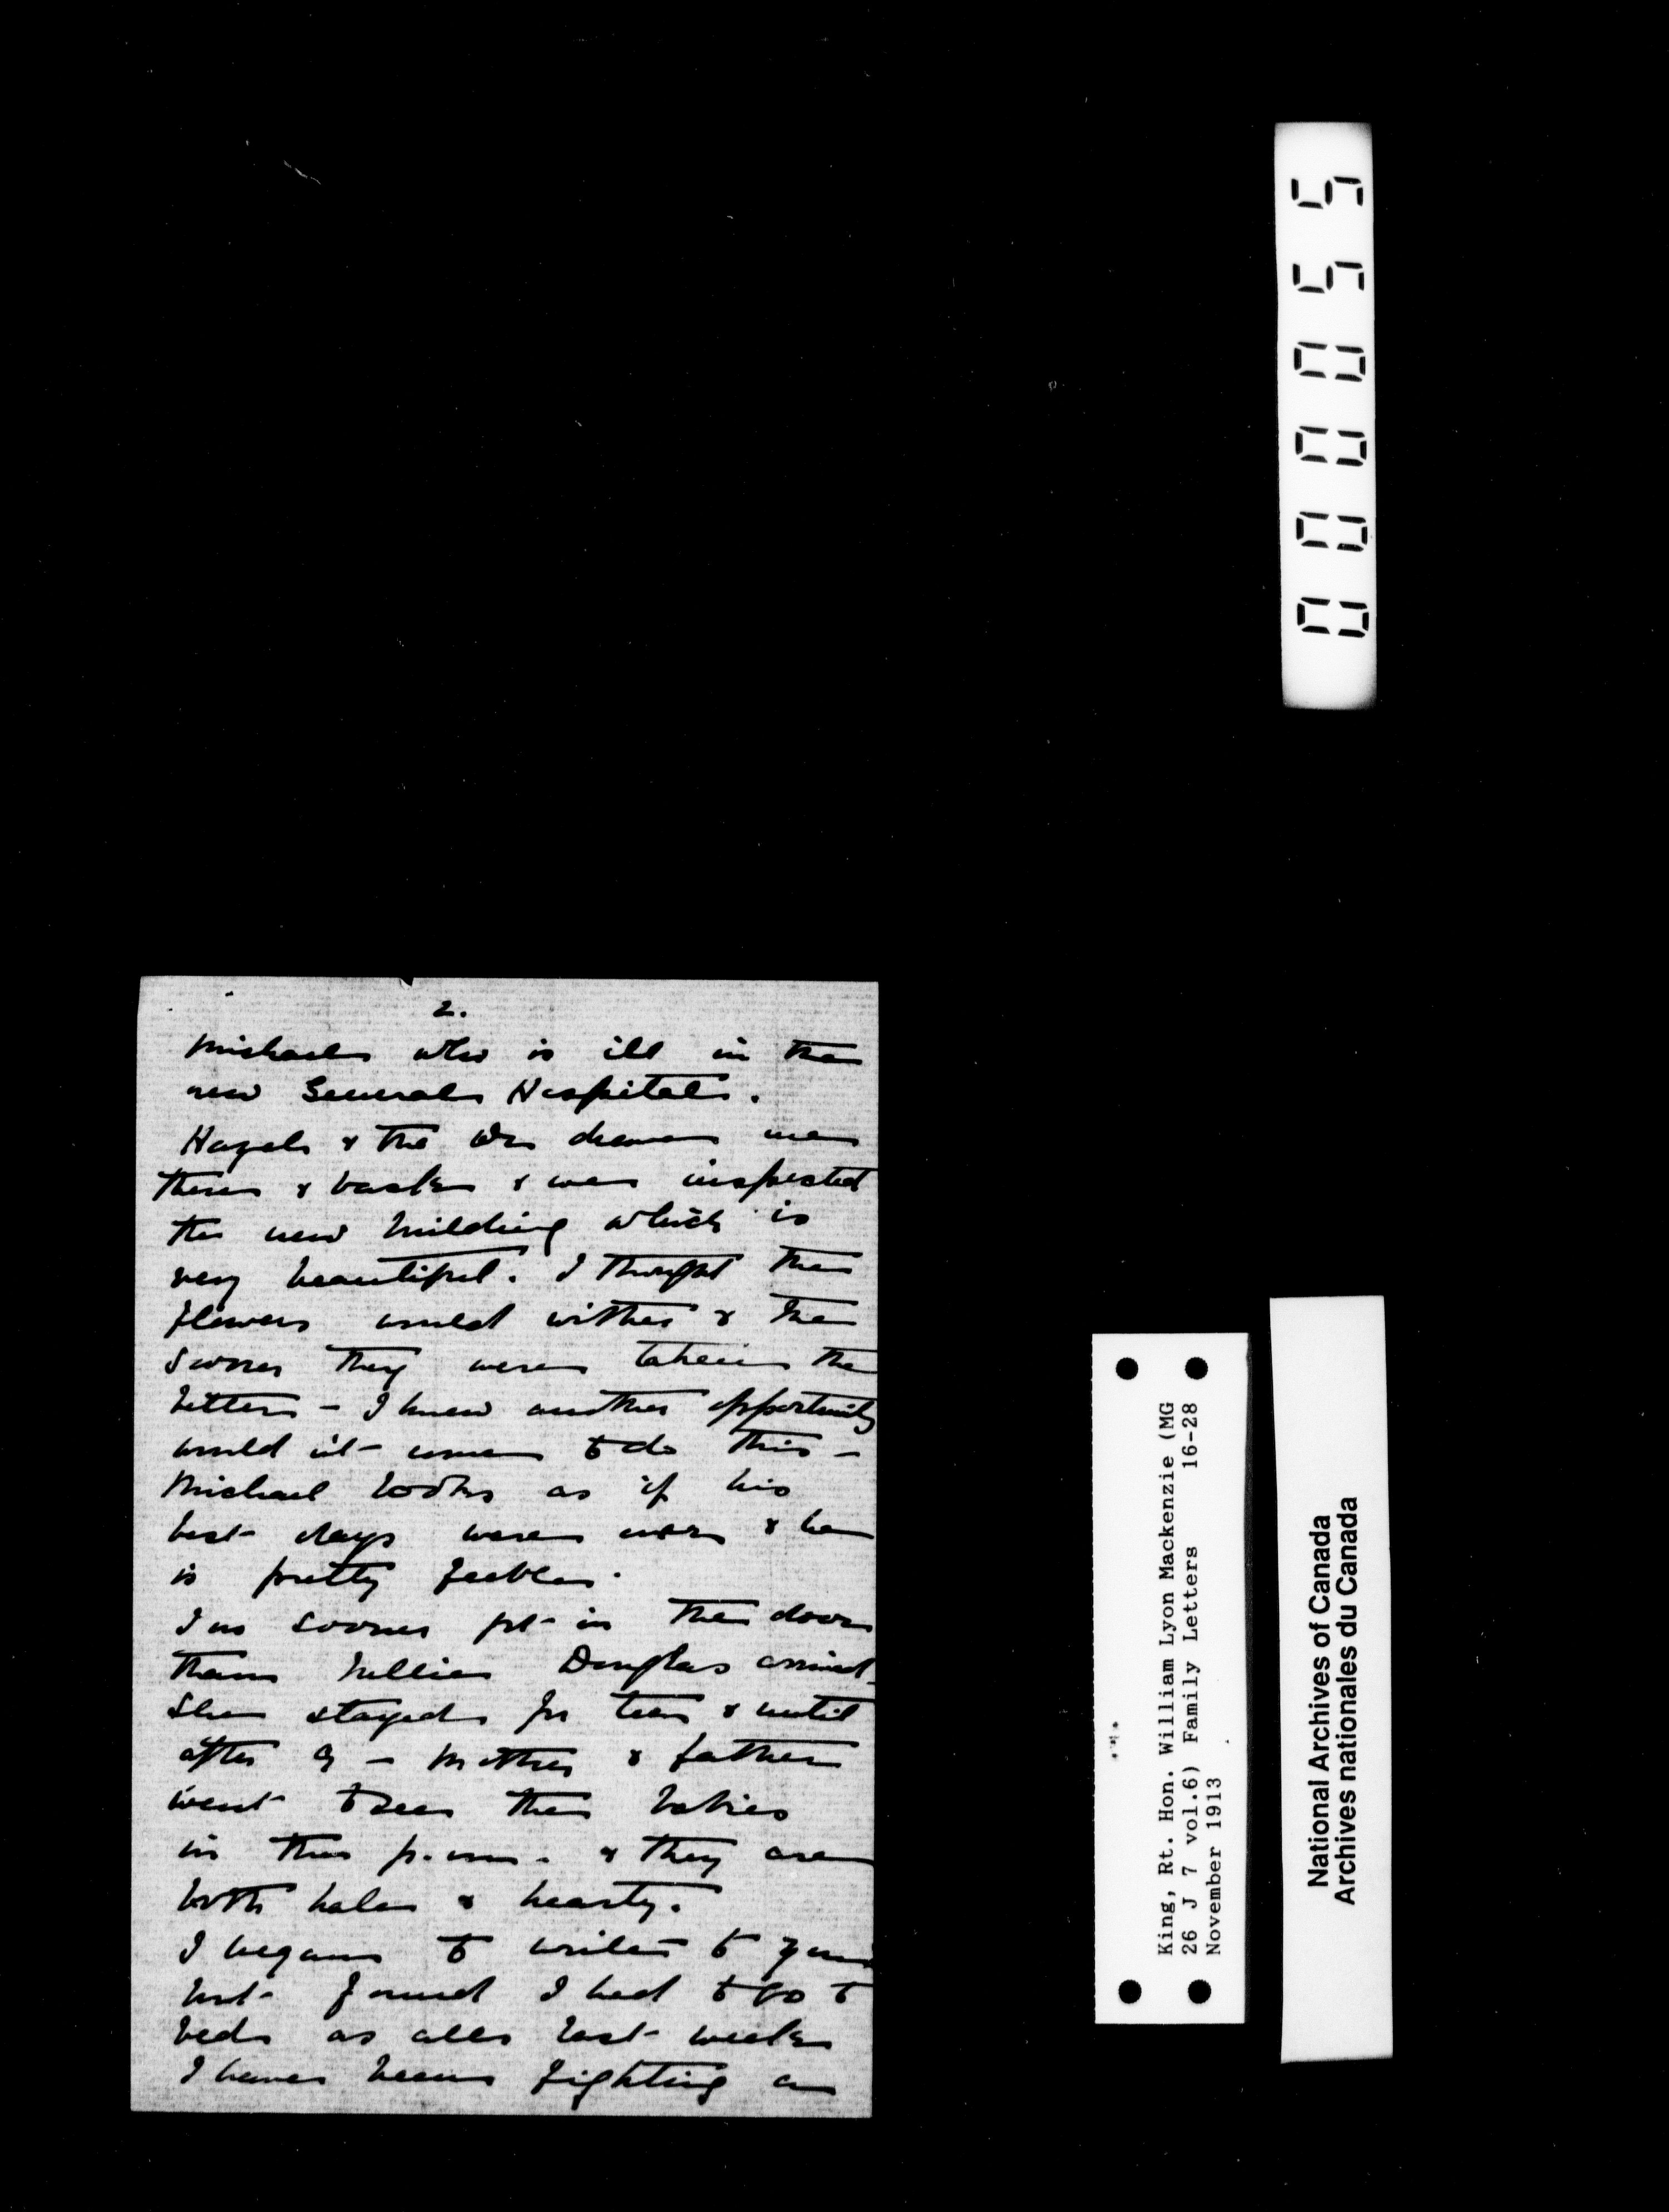 2.
Michael who is ill in the
new General Hospital.
Hazel & the Dr drove me
there & back & we inspected
the new building which is
very beautiful. I thought the
flowers would wither & the
sooner they were taken the
better - I knew another opportunity
would n't come to do this -
Michael looks as if his
best days were over & he
is pretty feeble.
I no sooner got in the door
than Nellie Douglas arrived
She stayed for tea & until
after 9 - Mother & father
went to see the babies
in the p.m. & they are
both hale & hearty.
I began to write to you
but found I had to go to
bed as all last week
I have been fighting a
000055
King, Rt. Hon. William Lyon Mackenzie (MG
26 J 7 vol.6) Family Letters 16-28
November 1913
National Archives of Canada
Archives nationales du Canada